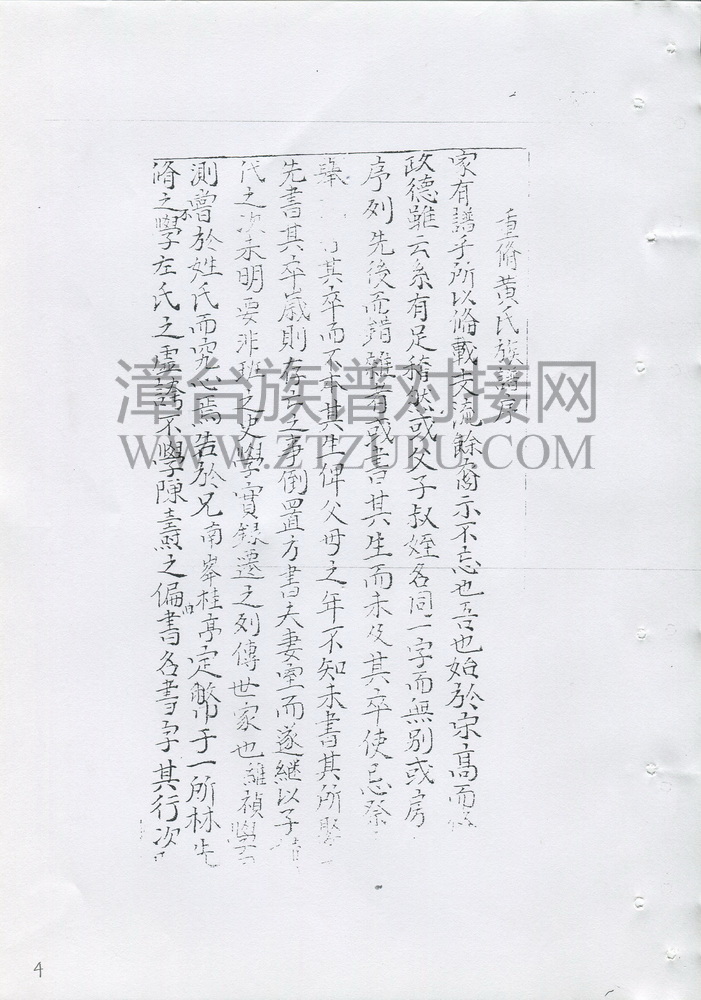 重脩黄氏族譜序
家有譜乎所以脩載支流餘裔示不忘也吾也始於宗高而
政德雖云系有足稽然或父子叔姪各同一字而無別或房
序列先後而錯雜有或書其生而未及其卒使忌祭
其卒而不本其生俾父母之年不知未書其所娶
先書其卒歲則存亡之事倒置方書夫妻室而遂継以子
代之次未明要非班之史學實録遷之列傳世家也維禎學
測嘗於姓氏而究心焉告於兄南峯桂亭定幣于一所林先
脩之不學左氏之虛誇不學陳壽之偏書名書字其行次
漳台族谱对接网
WWW.ZTZUPU.COM
4